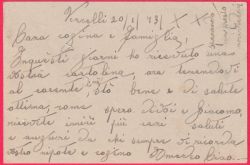 Vercelli 20/1/43 X X
Cara cugina e famiglia,
In questi giorni ho ricevuto una
vostra cartolina, ora tenendovi
al corrente, stò bene e di salute
ottima, come spero di voi e Giacomo,
ricevete invio più cari saluti
e auguri da chi sempre vi ricorda
vostro nipote e cugino